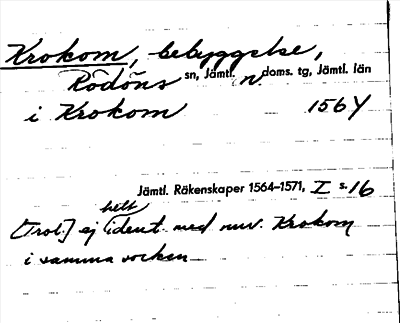 Krokom, bebyggelse,
Rödöns sn, Jämtl. n. doms. tg, Jämtl. län
i Krokom 1564
Jämtl. Räkenskaper 1564–1571, I s. 16
[Trol.] ej helt ident. med nuv. Krokom
i samma socken